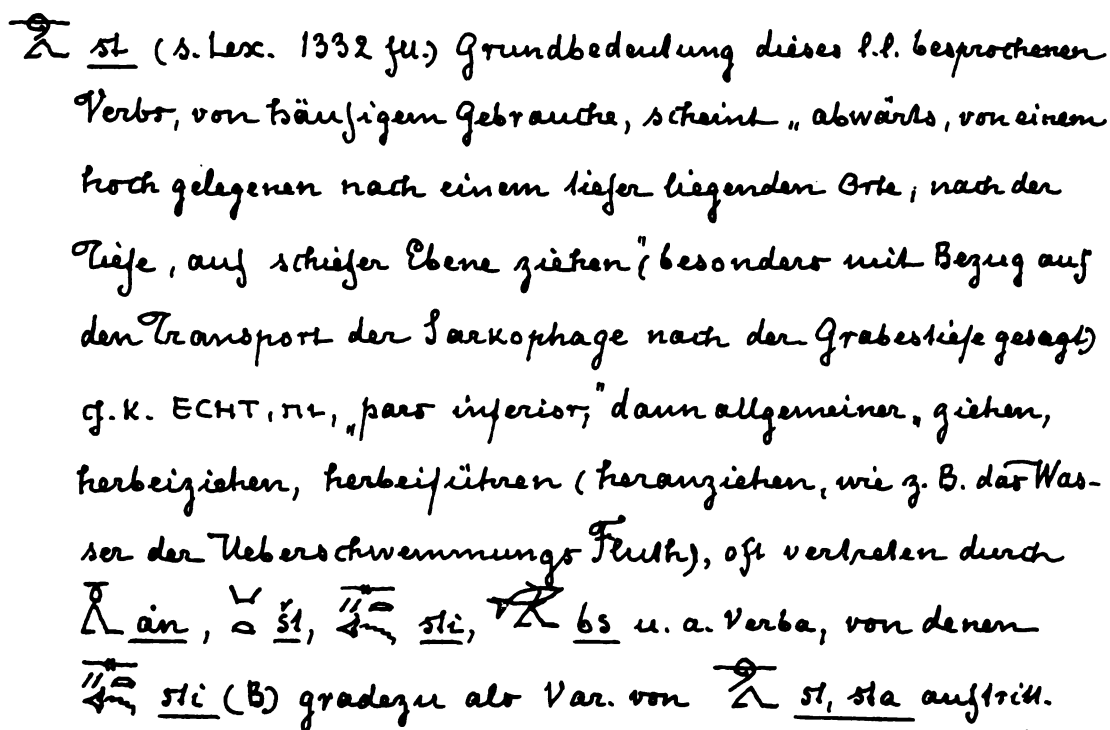 st (s. Lex. 1332 fll.) Grundbedeutung dieses l.l. besprochenen
Verbs, von häufigem Gebrauche, scheint „abwärts, von einem
hoch gelegenen nach einem tiefer liegenden Orte, nach der
Tiefe, auf schiefer Ebene ziehen" (besonders mit Bezug auf
den Transport der Sarkophage nach der Grabestiefe gesagt)
cf. K. ⲈⲤⲎⲦ, ⲡⲓ, „pars inferior," dann allgemeiner „ziehen,
herbeiziehen, herbeiführen (heranziehen, wie z. B. das Was-
ser der Ueberschwemmungs Fluth), oft vertreten durch
ȧn, št, sti, bs u. a. Verba, von denen
sti (B) gradezu als Var. von st, sta auftritt.